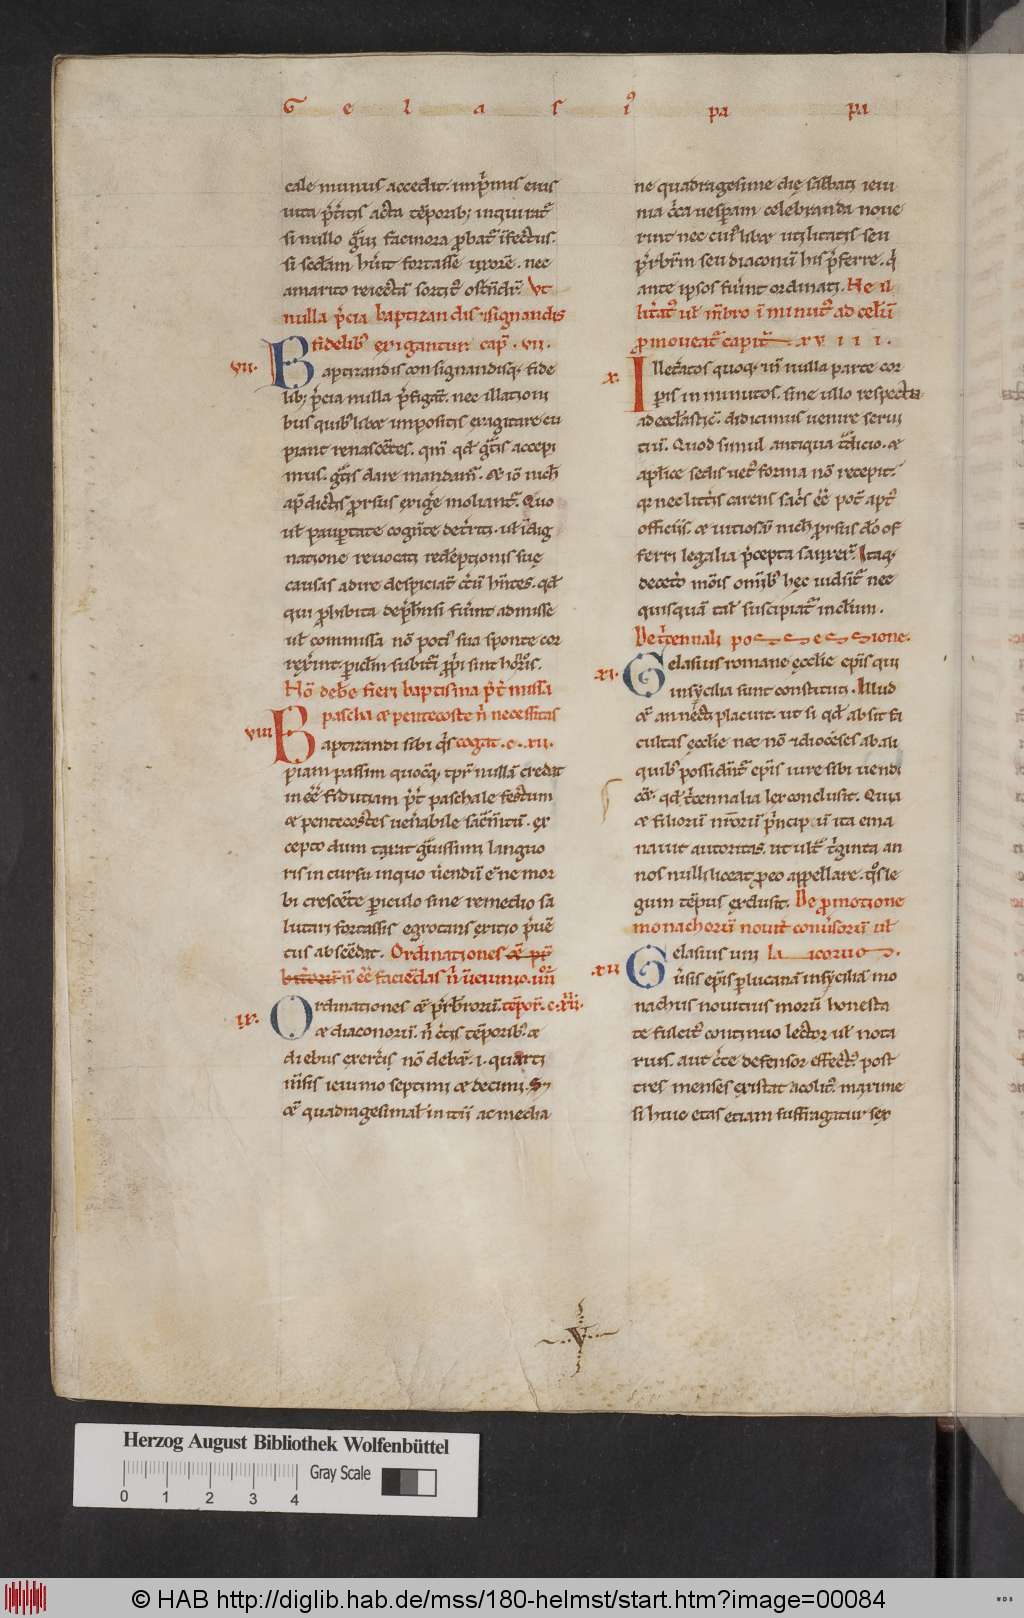 G e l a s iꝰ pa pa
cale munus accedit. inp̄mis eius
uita p̄t̄itis acta tēporib; inquirat᷑
si nullo g̃uiū facinora p̱bat᷑ ĩfectus.
si sc̄dam hūit fortasse uxorē. nec
a marito reiectā sortitꝰ ostēdit᷑. Vt
nulla p̄cia baptizandis ⁊signandis
fidelibꝰ exigantur cap̄. vii.
vii. Baptizandis consignandisq; fide
lib; p̄cia nulla p̄figāt. nec illationi
bus quibꝰlibꝫ impositis exagitare cu
piant renascētes. qm̄ qd̄ ḡtis accepi
mus. ḡtis dare mandam̄. & iō nich̄
ap̄dictis prorsus exiḡe moliant᷑. Quo
ul̄ paup̱tate cogn̄te det̄riti. ul̄ īdig
natione reuocati redēptionis suę
causas adire despiciāt c̄tū hn̄tes. qd̄
qui p̱hibita dep̱h̄nsi fūint admisse
ul̄ commissa nō potiꝰ sua sponte cor
rexerint. p̱iclm̄ subit̄i p̱pri sint honoris.
Nō debꝫ fieri baptisma p̄t missa
pascha & pentecoste n̄ necessitas
viii Baptizandi sibi q̄s cogat. c. xii.
piam passim quocūq; tpr̄ nullā credat
in eē̄ fiduciam p̄t paschale festum
& pentecostes uen̄abile sac̄m̄tū. ex
cepto dum taxat g̃uissimi languo
ris incursu inquo ūendū ē ne mor
bi crescēte p̱iculo sine remedio sa
lutari fortassis egrotans exitio p̄uē
tus abscedat. Ordinationes &̄ pr̄
bit̄orū ñ eē̄ faciendas n̄ iiii ieiunio. iiii
ix. Ordinationes &̄ p̄rb̄rorū. tēpor. c. xiii.
& diaconorū. n̄ c̄tis tēporibꝰ &
diebus exerc̄i nō debēt. i. quarti
m̄sis ieiunio septimi & decimi. S;
&̄ quadragesimal̄ initii ac media
ne quadragesime die sabbati ieiu
nia c̄ca uesp̱am celebranda noue
rint nec cuiꝰlibꝫ utilitatis seu
p̄rb̄rm seu diaconū his p̄ferre. q̄
ante ipsos fūint ordinati. Ne il
litatꝰ ul̄ m̄bro īminutꝰ ad cel̄ū
p̱moueat᷑ capit̄ xviii.
x. Illitatos quoq; uī nulla parte cor
p̱is inminutos. sine ullo respectu
ad eccl̄asticū. didicimus uenire serui
tiū. Quod simul antiqua t̄dicio. &
apl̄ice sedis uet᷑ forma nō recepit.
q̄ nec litt̄is carens sac̄s eē̄ pot̄ aptꝰ
officiis. & uitiosū nich̄ prorsus dō of
ferri legalia p̄cepta sanxer̄. Itaq;
decet̄o mōis omībꝰ hęc uidēt᷑ nec
quisquā tal̄ suscipiat᷑ in cl̄um.
De t̄cennali possessione.
xi. Gelasius romane ęcclie ep̄is qui
insycilia sunt constituti. Illud
&̄ annecti placuit. ut si qd̄ absit fa
cultas ęcclie nec nō ⁊ dioceses ab ali
quibꝰ possidēt᷑ ep̄is iure sibi uendi
cēt. qd̄ t̄cennalia lex conclusit. Quia
& filiorū nr̄orū p̄ncipū ita ema
nauit autoritas. ut ult᷑ t̄ginta an
nos nulli liceat p̱ eo appellare. qđ le
gum tēpus exclusit. De p̱motione
monachorū nouit᷑ conuersorū ul̄
xii Gelasius uni laicorum.
ūsis ep̄is p̱ lucanā insyciliā mo
nachus nouitius morū honesta
te fulcitꝰ continuo lector ul̄ nota
rius. aut c̄te defensor effectꝰ. post
tres menses existat acolitꝰ. maxime
si huic etas etiam suffragatur sex
Herzog August Bibliothek Wolfenbüttel
Gray Scale
0 1 2 3 4
© HAB http://diglib.hab.de/mss/180-helmst/start.htm?image=00084